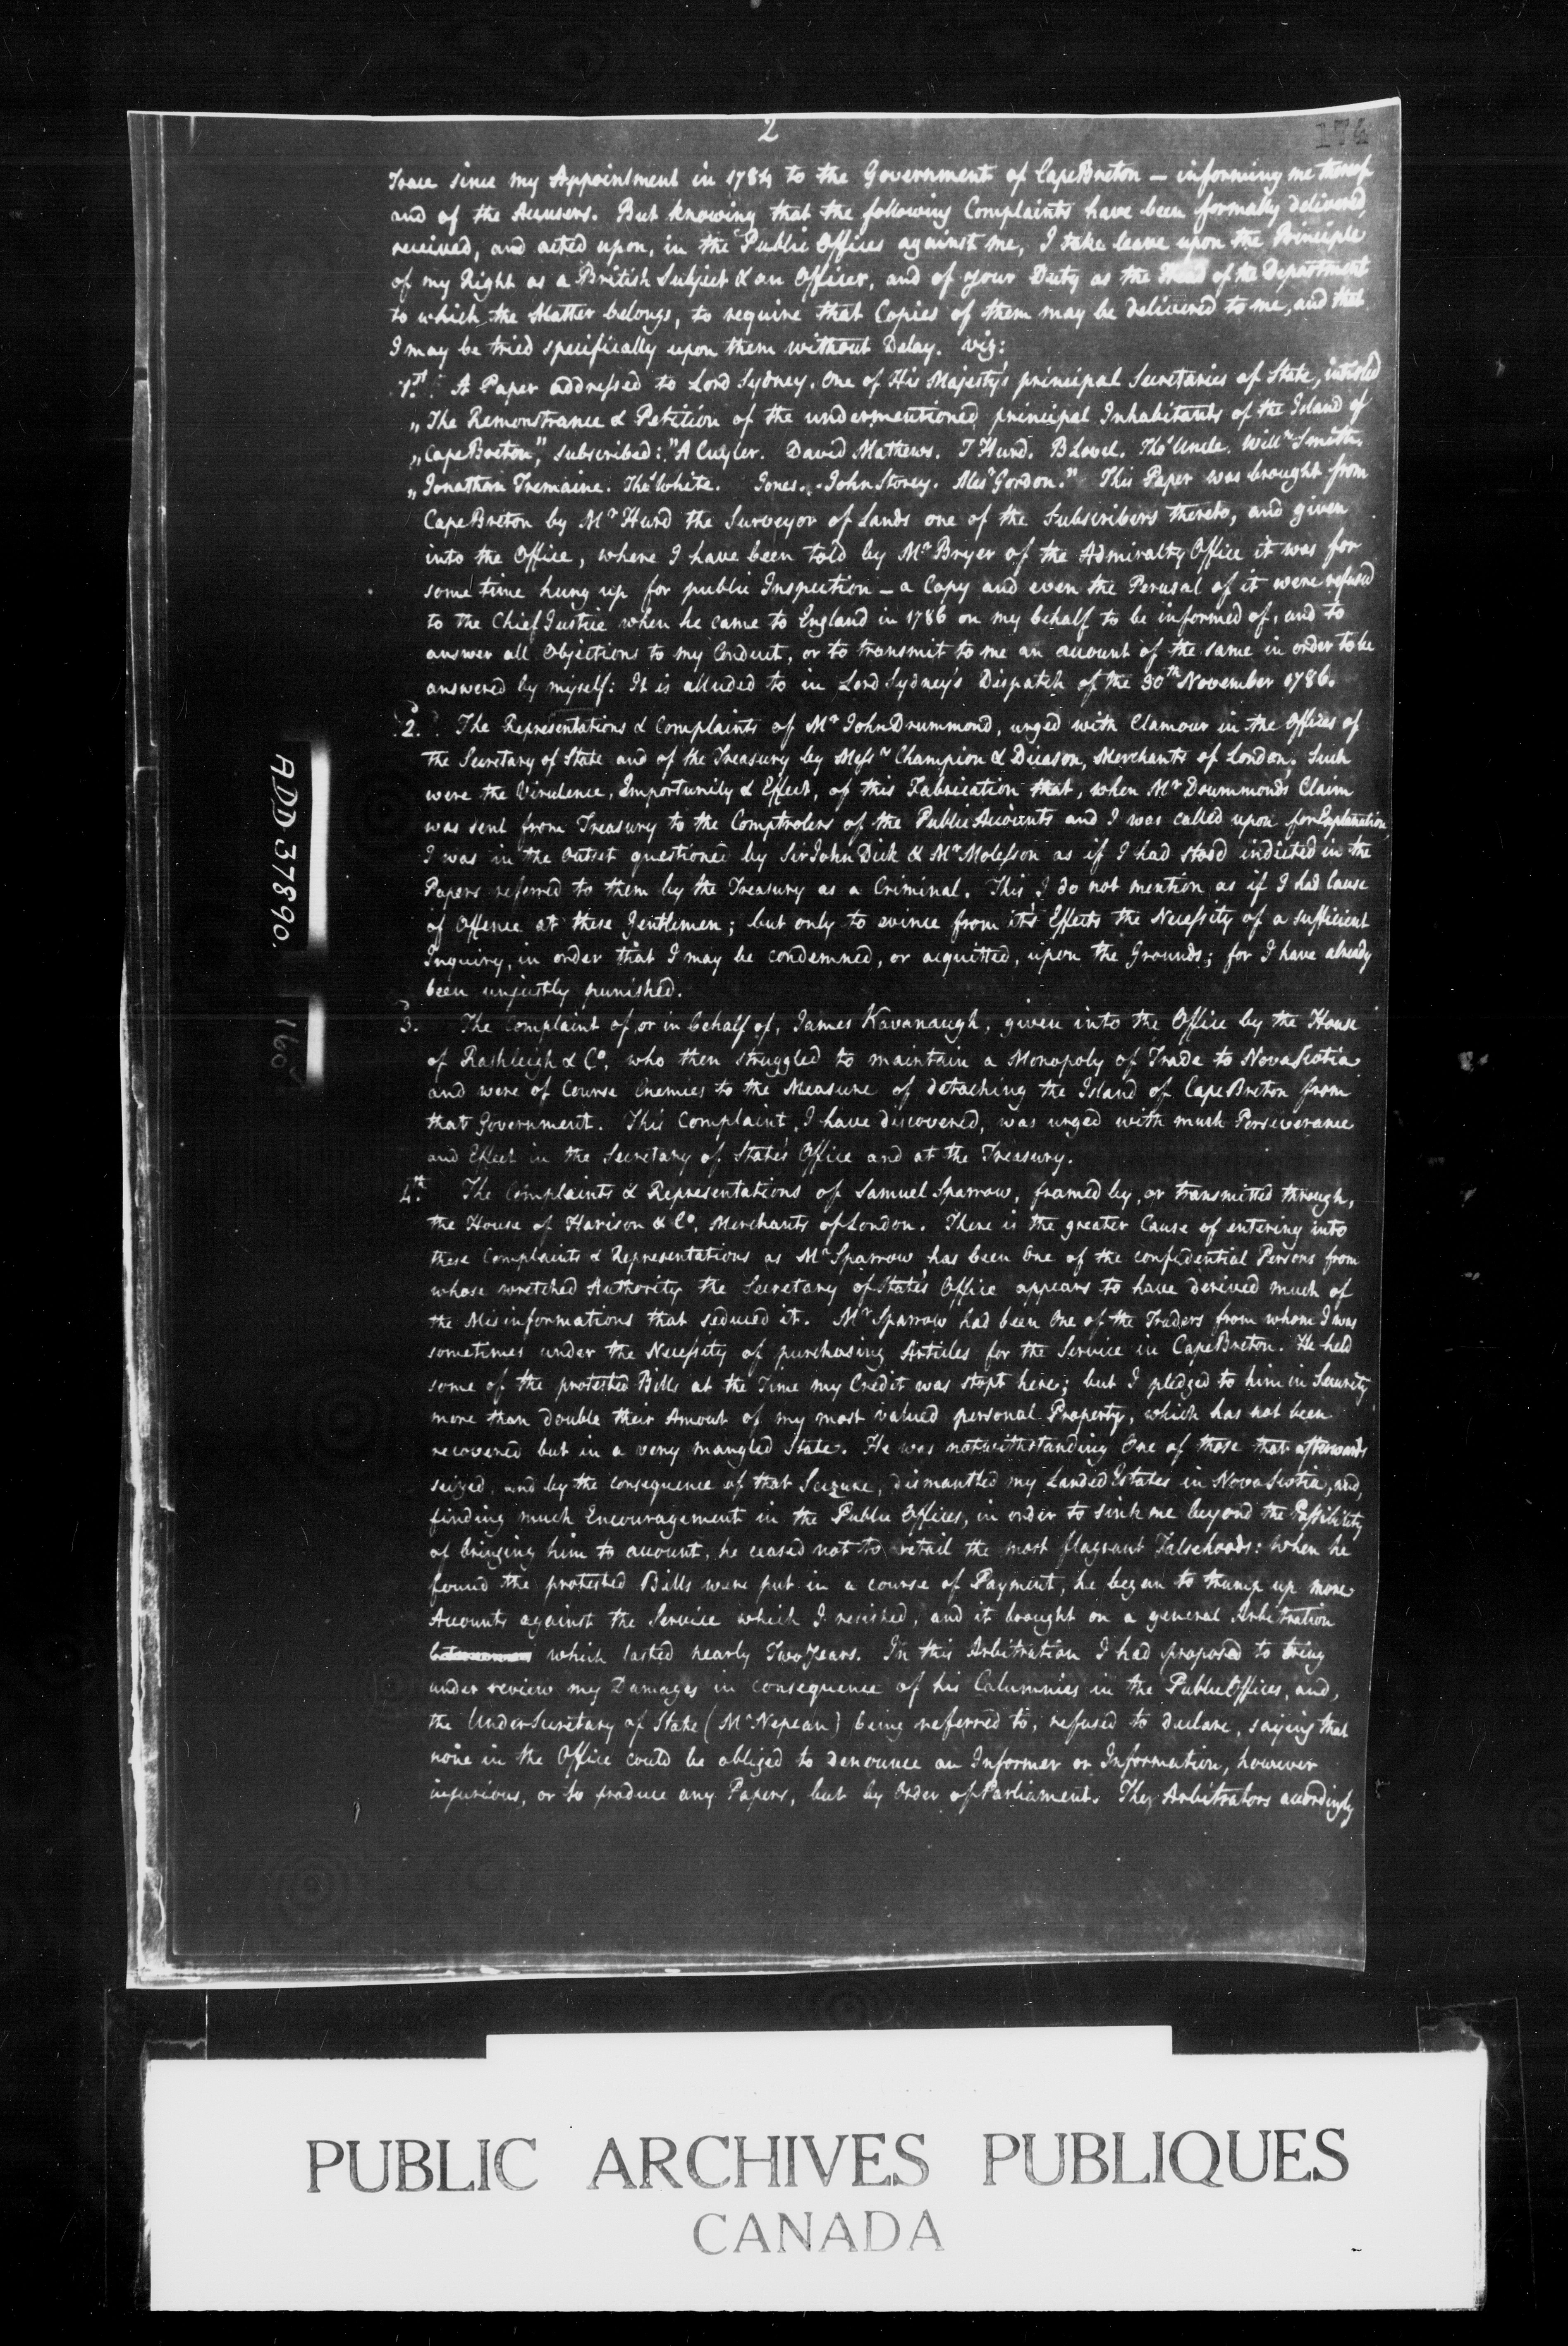 2
174
Trace since my Appointment in 1784 to the Government of Cape Breton — informing me thereof
and of the Accusers. But knowing that the following Complaints have been formally delivered,
received, and acted upon, in the Public Offices against me, I take leave upon the Principle
of my Right as a British Subject & an Officer, and of your Duty as the Head of the Department
to which the Matter belongs, to require that Copies of them may be delivered to me, and that
I may be tried specifically upon them without Delay. viz:
1.st A Paper addressed to Lord Sydney, One of His Majesty's principal Secretaries of State, intitled
„The Remonstrance & Petition of the undermentioned principal Inhabitants of the Island of
„Cape Breton", subscribed: "A Cuyler. David Mathews. T Hurd. B Lovel. Tho.s Uncle. Will.m Smith.
„Jonathan Tremaine. Tho.s White. Jones. John Storey. Alex.r Gordon." This Paper was brought from
Cape Breton by M.r Hurd the Surveyor of Lands one of the Subscribers thereto, and given
into the Office, where I have been told by M.r Bryer of the Admiralty Office it was for
some time hung up for public Inspection — a Copy and even the Perusal of it were refused
to the Chief Justice when he came to England in 1786 on my behalf to be informed of, and to
answer all Objections to my Conduct, or to transmit to me an account of the same in order to be
answered by myself: It is alluded to in Lord Sydney's Dispatch of the 30th November 1786.
2. The Representations & Complaints of M.r John Drummond, urged with Clamour in the Offices of
the Secretary of State and of the Treasury by Mess.rs Champion & Dicason, Merchants of London. Such
were the Virulence, Importunity & Effect, of this Fabrication that, when M.r Drummond's Claim
was sent from Treasury to the Comptrolers of the Public Accounts and I was called upon for Explanation,
I was in the Outset questioned by Sir John Dick & M.r Molesson as if I had stood indicted in the
Papers referred to them by the Treasury as a Criminal. This I do not mention as if I had Cause
of Offence at these Gentlemen; but only to evince from it's Effects the Necessity of a sufficient
Inquiry, in order that I may be condemned, or acquitted, upon the Grounds; for I have already
been unjustly punished.
3. The Complaint of, or in behalf of, James Kavanaugh, given into the Office by the House
of Rashleigh & Co. who then struggled to maintain a Monopoly of Trade to Nova Scotia
and were of Course Enemies to the Measure of detaching the Island of Cape Breton from
that Government. This Complaint, I have discovered, was urged with much Perseverance
and Effect in the Secretary of State's Office and at the Treasury.
4.th The Complaints & Representations of Samuel Sparrow, framed by, or transmitted through,
the House of Harison & Co. Merchants of London. There is the greater Cause of entering into
these Complaints & Representations as M.r Sparrow has been One of the confidential Persons from
whose wretched Authority the Secretary of State's Office appears to have derived much of
the Misinformations that seduced it. M.r Sparrow had been One of the Traders from whom I was
sometimes under the Necessity of purchasing Articles for the Service in Cape Breton. He held
some of the protested Bills at the Time my Credit was stopt here; but I pledged to him in Security
more than double their Amount of my most valued personal Property, which has not been
recovered but in a very mangled State. He was notwithstanding One of those that afterwards
seized, and by the consequence of that Seizure, dismantled my Landed Estates in Nova Scotia, and,
finding much Encouragement in the Public Offices, in order to sink me beyond the Possibility
of bringing him to account, he ceased not to retail the most flagrant Falsehoods: when he
found the protested Bills were put in a course of Payment, he began to trump up more
Accounts against the Service which I resisted, and it brought on a general Arbitration
which lasted nearly Two Years. In this Arbitration I had proposed to bring
under review my Damages in consequence of his Calumnies in the Public Offices, and,
the Under Secretary of State (M.r Nepean) being referred to, refused to declare, saying that
none in the Office could be obliged to denounce an Informer or Information, however
injurious, or to produce any Papers, but by Order of Parliament. The Arbitrators accordingly
ADD 37890.
160
PUBLIC ARCHIVES PUBLIQUES
CANADA